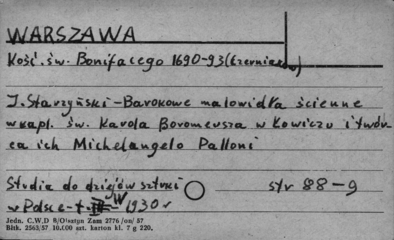 WARSZAWA
Kość. św. Bonifacego 1690-93 (Czerniaków)
J. Starzyński - Barokowe malowidła ścienne
w kapl. św. Karola Boromeusza w Łowiczu i twór-
ca ich Michelangelo Palloni
Studia do dziejów sztuki str 88-9
w Polsce - t. IV 1930 r
Jedn. C.W.D 8/Olsztyn Zam 2776/on/57
Błtk. 2563/57 10.000 szt. karton kl. 7 g 220.